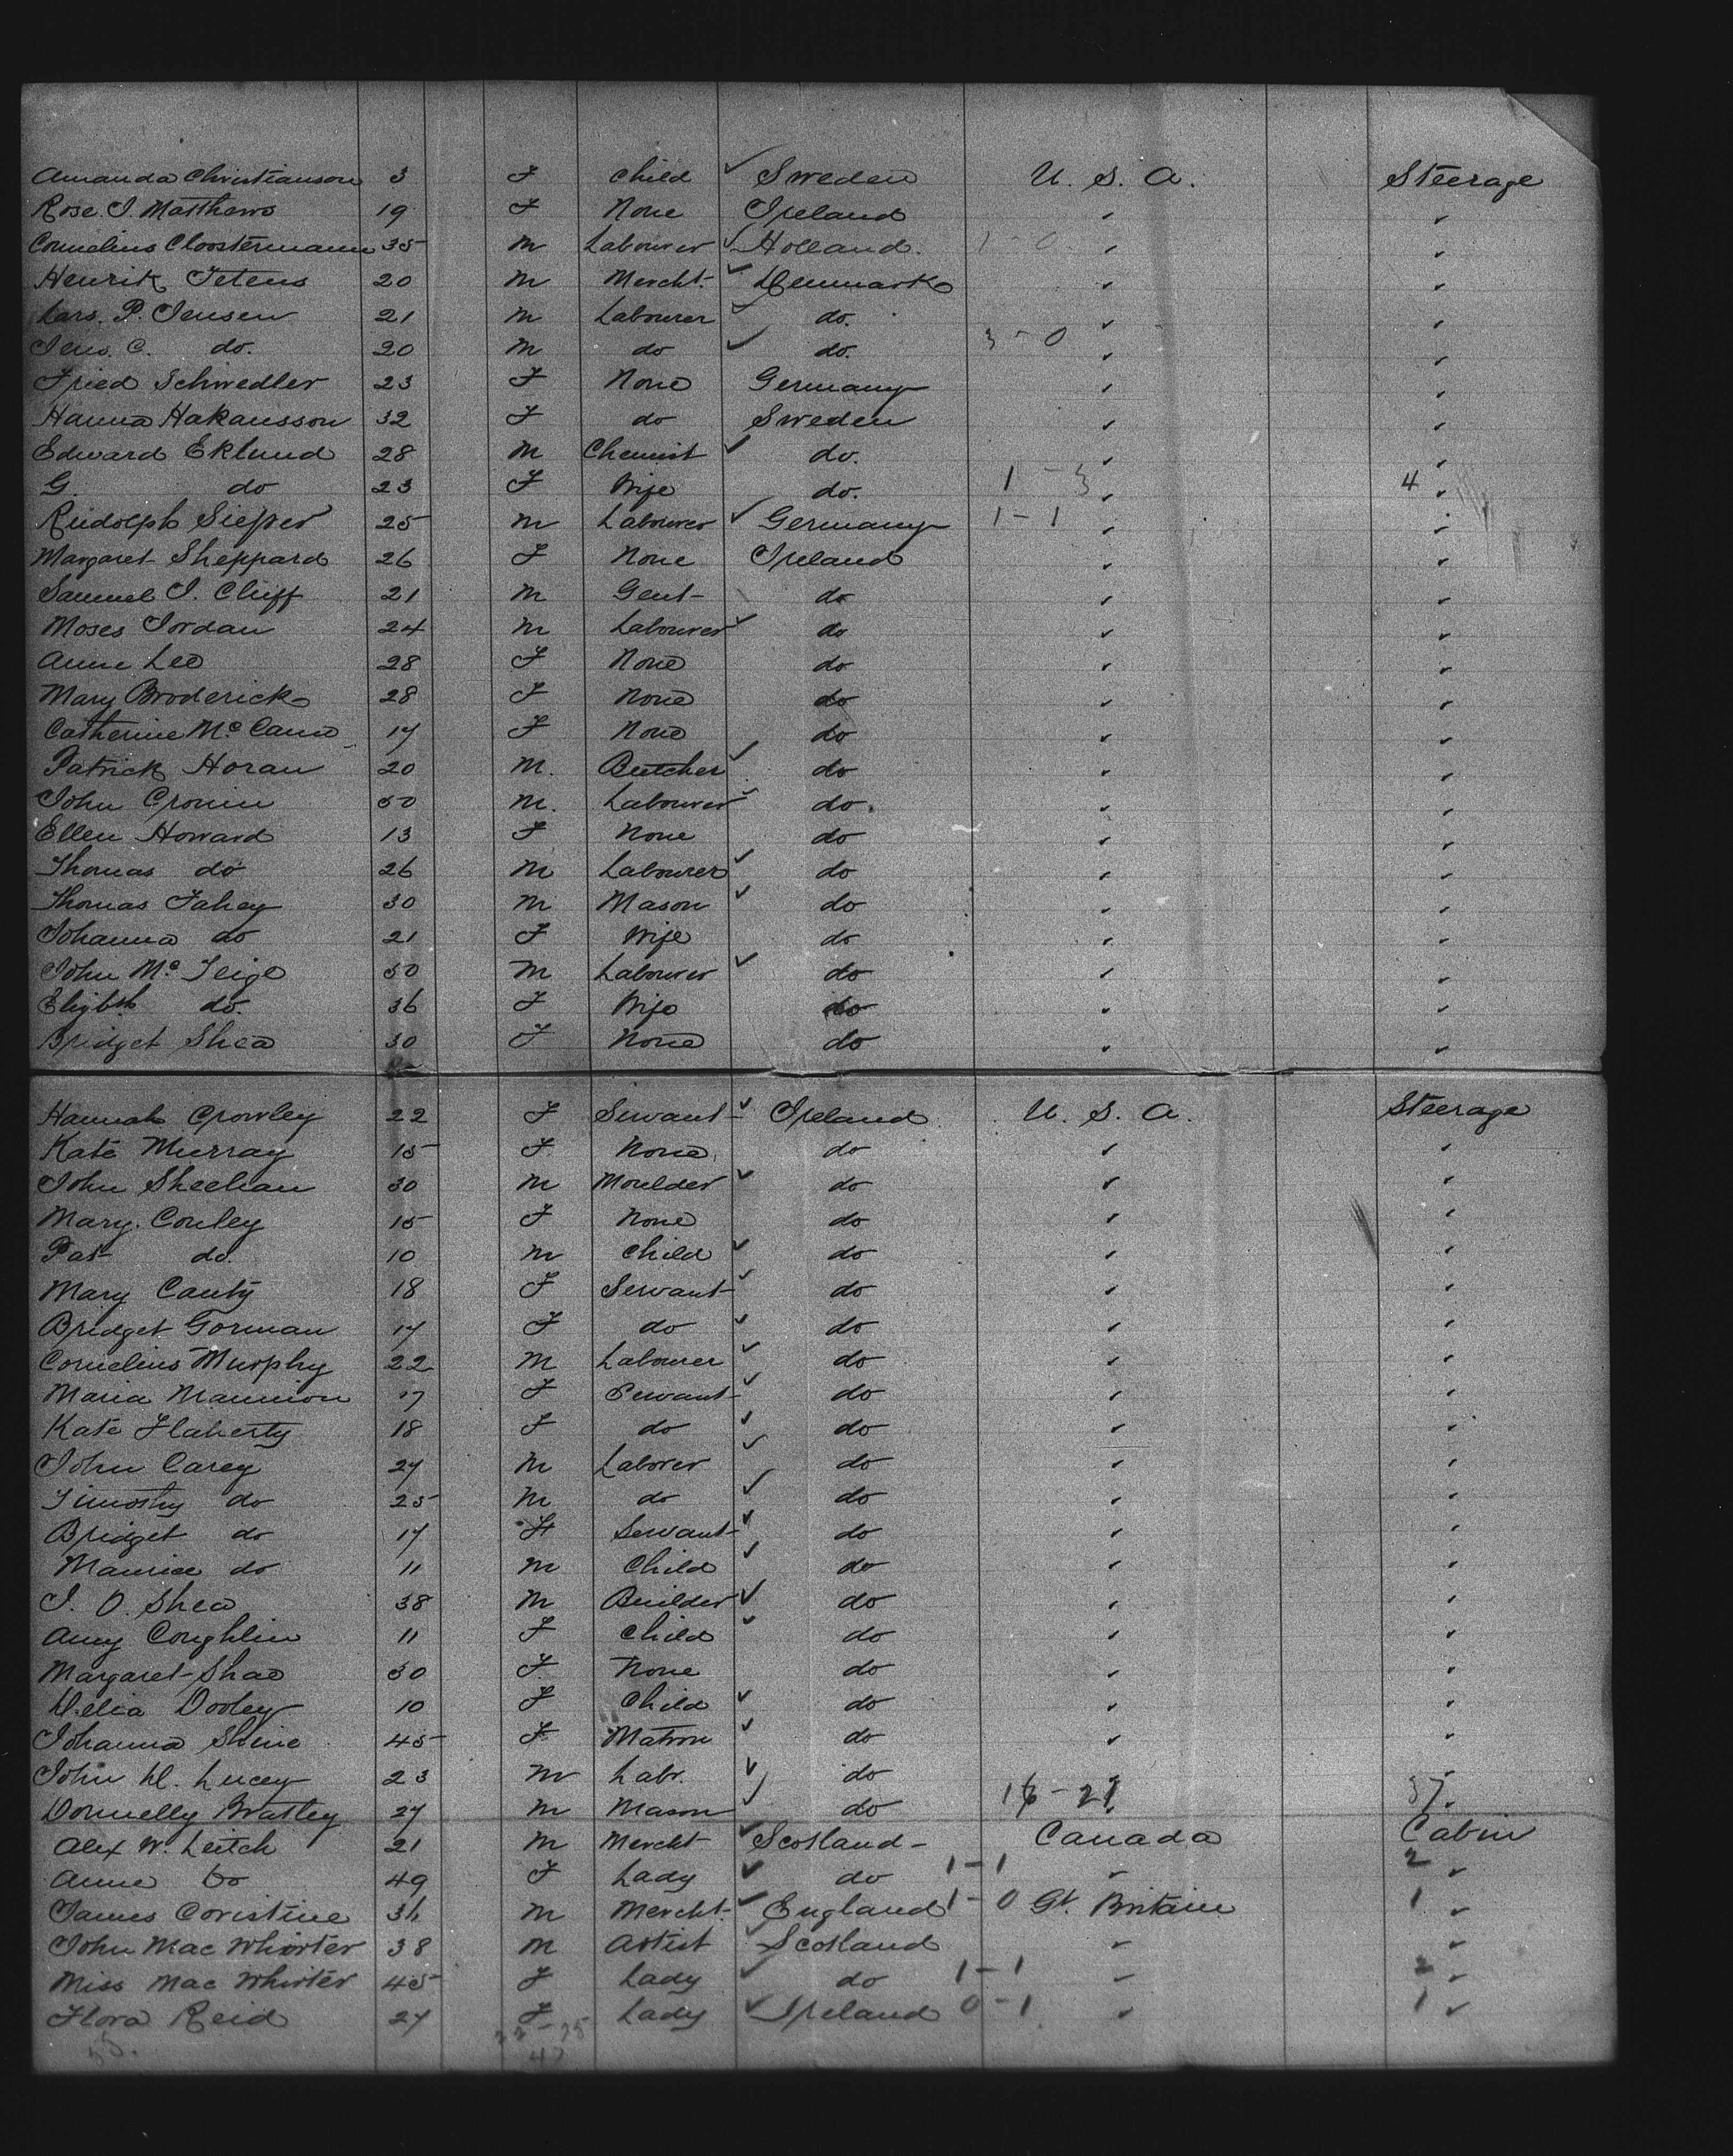 Amanda Christianson 3 F Child ✓ Sweden U. S. A. Steerage
Rose J. Matthews 19 F None Ireland ✓ ✓
Cornelius Cloostermann 35 M Labourer ✓ Holland. 1-0 ✓ ✓
Henrik Tetens 20 M Mercht. ✓ Denmark ✓ ✓
Lars. P. Jensen 21 M Labourer ✓ do. ✓ ✓
Jens. C. do. 20 M do ✓ do. 3-0 ✓ ✓
Fried Schwedler 23 F None Germany ✓ ✓
Hanna Hakansson 32 F do Sweden ✓ ✓
Edward Eklund 28 M Chemist ✓ do. ✓ ✓
G. do 23 F Wife do. 1-3 ✓ 4 ✓
Rudolph Sieper 25 M Labourer ✓ Germany 1-1 ✓ ✓
Margaret Sheppard 26 F None Ireland ✓ ✓
Samuel J. Cliff 21 M Gent do ✓ ✓
Moses Jordan 24 M Labourer ✓ do ✓ ✓
Anne Lee 28 F None do ✓ ✓
Mary Broderick 28 F None do ✓ ✓
Catherine McCann 17 F None do ✓ ✓
Patrick Horan 20 M. Butcher ✓ do ✓ ✓
John Cronin 50 M. Labourer ✓ do. ✓ ✓
Ellen Howard 13 F None do ✓ ✓
Thomas do 26 M Labourer ✓ do ✓ ✓
Thomas Fahey 30 M Mason ✓ do ✓ ✓
Johanna do 21 F Wife do ✓ ✓
John McTeige 50 M Labourer ✓ do ✓ ✓
Elizbth do. 36 F Wife do ✓ ✓
Bridget Shea 30 F None do ✓ ✓
Hannah Crowley 22 F Servant ✓ Ireland U. S. A. Steerage
Kate Murray 15 F None do ✓ ✓
John Sheehan 30 M Moulder ✓ do ✓ ✓
Mary Conley 15 F None do ✓ ✓
Pat do. 10 M Child ✓ do ✓ ✓
Mary Canty 18 F Servant ✓ do ✓ ✓
Bridget Gorman 17 F do ✓ do ✓ ✓
Cornelius Murphy 22 M Labourer ✓ do ✓ ✓
Maria Mannion 17 F Servant ✓ do ✓ ✓
Kate Flaherty 18 F do ✓ do ✓ ✓
John Carey 27 M Laborer ✓ do ✓ ✓
Timothy do 25 M do ✓ do ✓ ✓
Bridget do 17 F Servant ✓ do ✓ ✓
Maurice do 11 M Child ✓ do ✓ ✓
J. O. Shea 38 M Builder ✓ do ✓ ✓
Amy Coughlin 11 F Child ✓ do ✓ ✓
Margaret Shae 30 F None do ✓ ✓
Delia Dooley 10 F Child ✓ do ✓ ✓
Johanna Shine 45 F Matron ✓ do ✓ ✓
John D. Lucey 23 M Labr. ✓ do ✓ ✓
Donnelly Bratley 27 M Mason ✓ do 16-21 37.
Alex W. Leitch 21 M Mercht ✓ Scotland Canada Cabin
Anne Do 49 F Lady ✓ do 1-1 ✓ 2 ✓
James Coristine 36 M Mercht. ✓ England 1-0 Gt. Britain 1 ✓
John Mac Whirter 38 M Artist ✓ Scotland ✓ ✓
Miss Mac Whirter 45 F Lady ✓ do 1-1 ✓ 2 ✓
Flora Reid 27 F Lady ✓ Ireland 0-1 ✓ 1 ✓
47